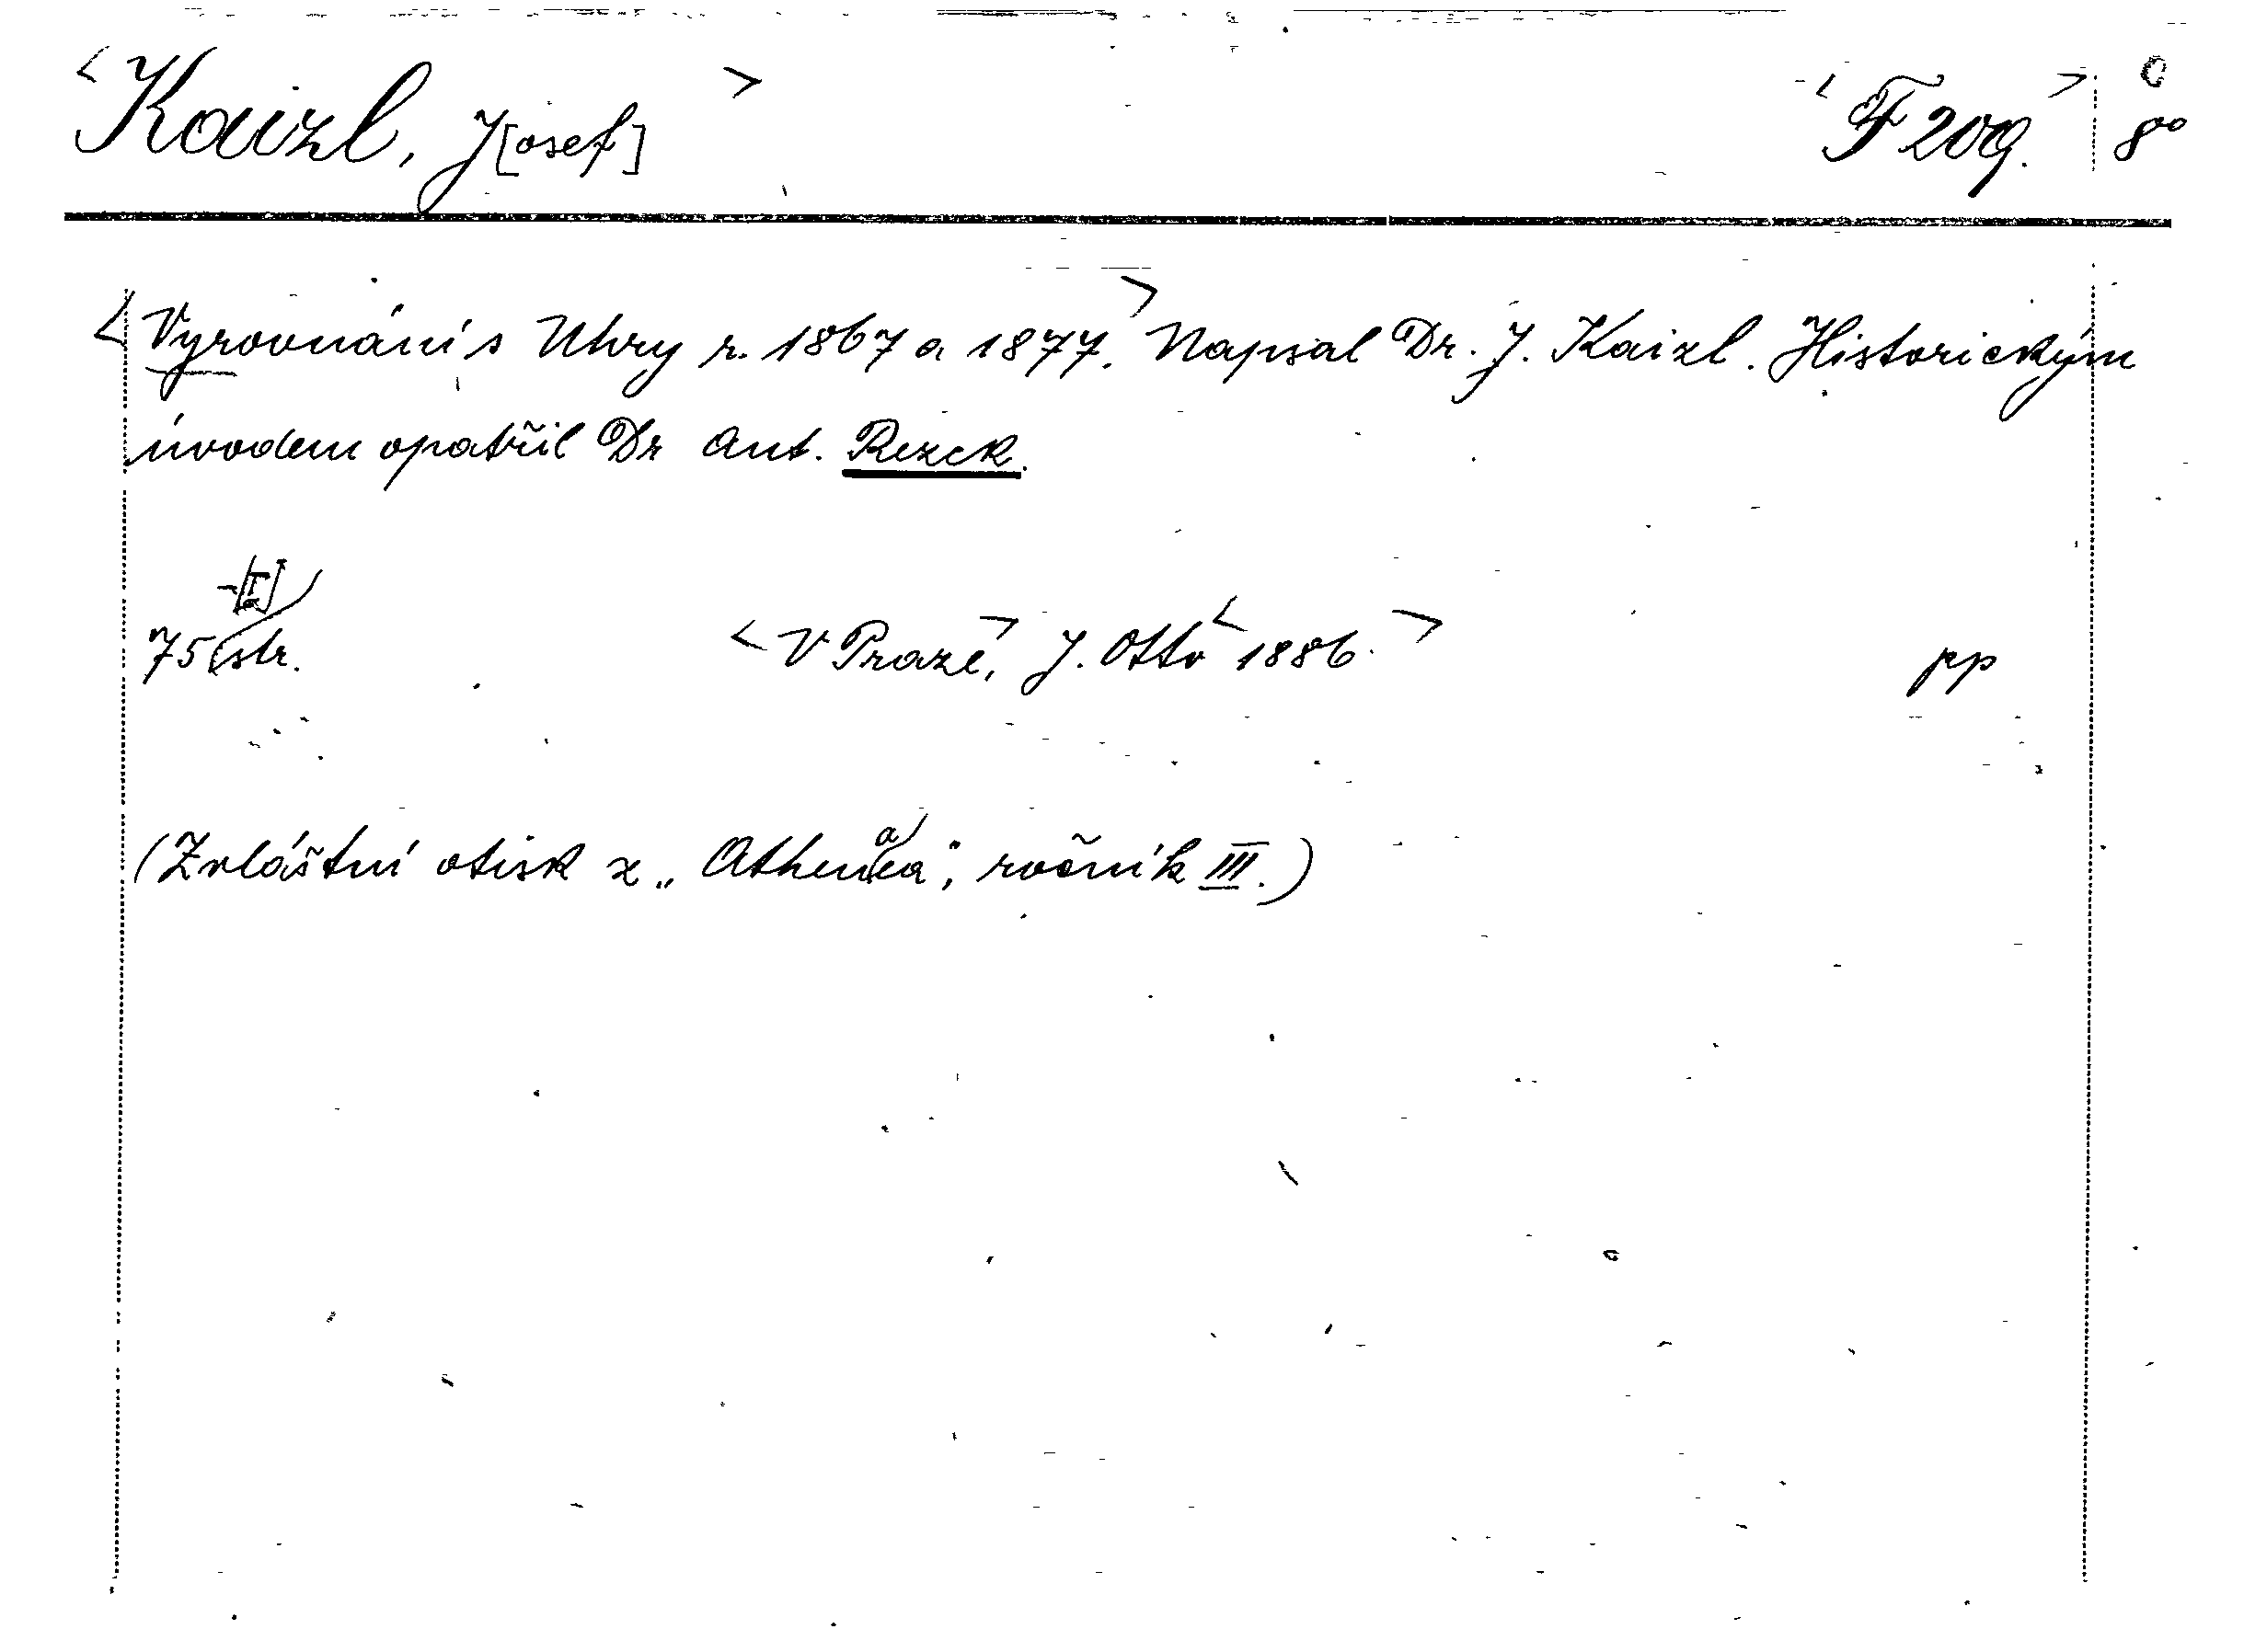 <Kaizl, J[osef]> <F 209.> 8°
<Vyrovnání s Uhry r. 1867 a 1877.> Napsal Dr. J. Kaizl. Historickým
úvodem opatřil Dr Ant. Rezek.
75-[I] str. <V Praze,> J. Otto <1886.> pp
(Zvláštní otisk z „Athenaea“, ročník III.)